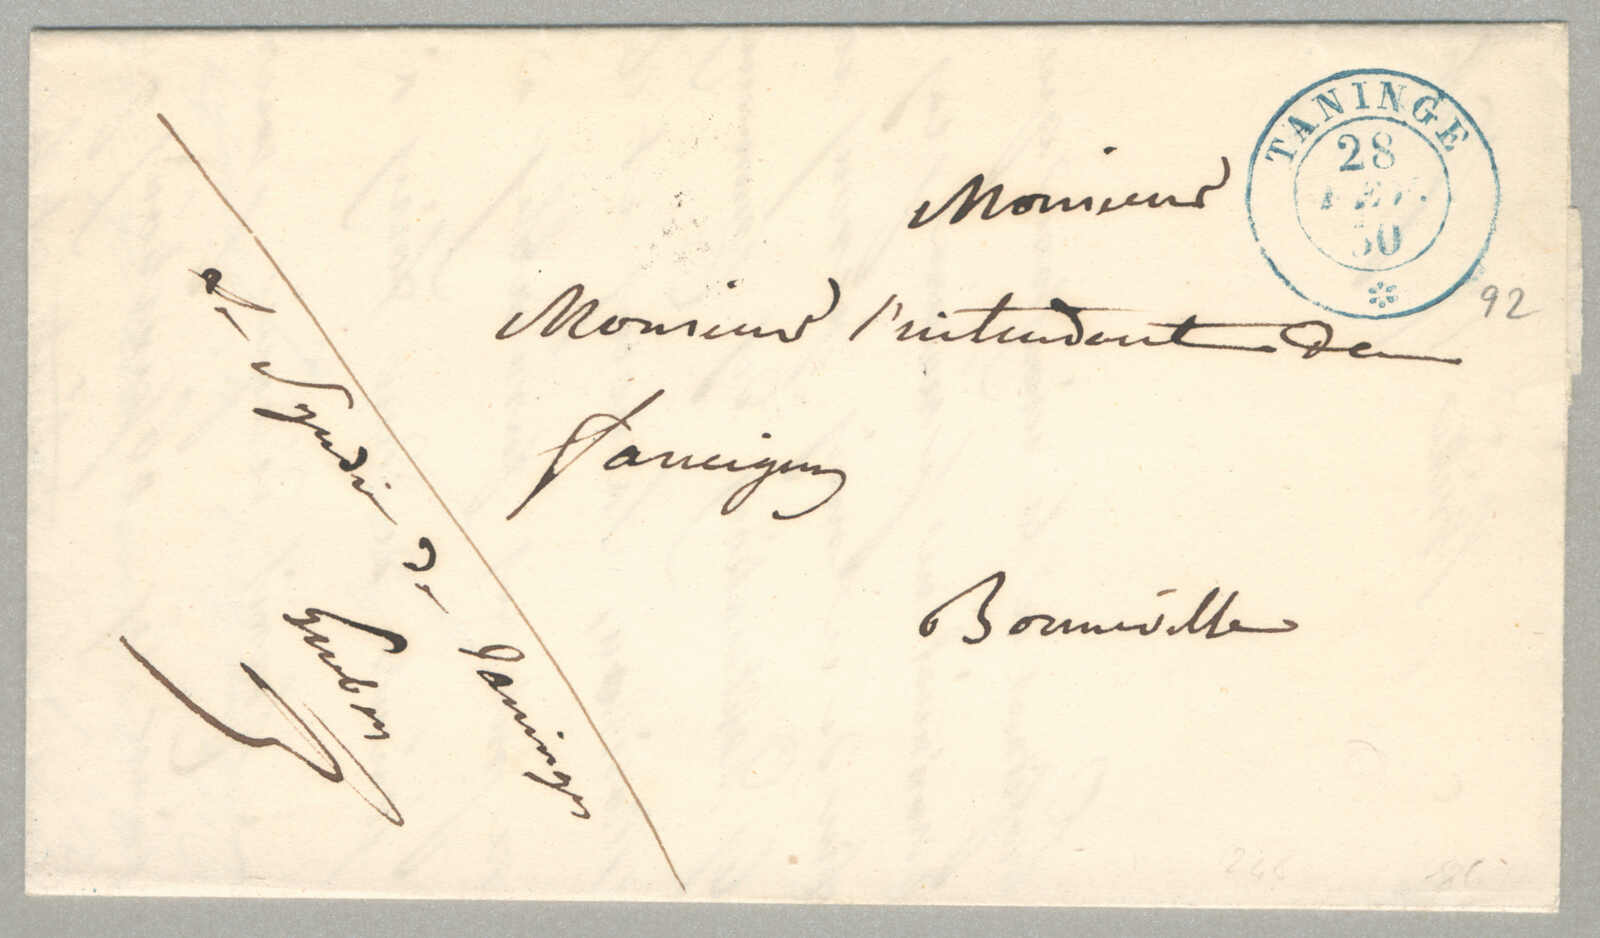 TANINGE
28
FEV.
50
92
Monsieur
Monsieur l'intendant de
Faucigny
Bonneville
le Syndic de Taninges